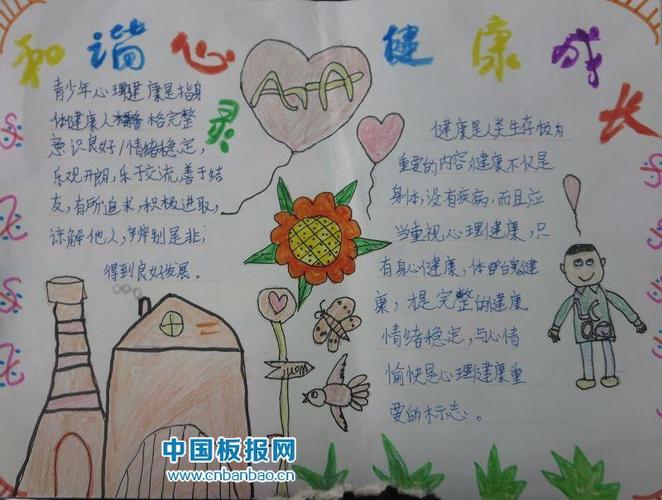 和谐心灵 健康成长
青少年心理健康是指身
体健康人格完整
意识良好,情绪稳定,
乐观开朗,乐于交流,善于结
友,有所追求,积极进取,
谅解他人,辨别是非,
得到良好发展。
健康是人类生存极为
重要的内容,健康不仅是
身体,没有疾病,而且应
当重视心理健康,只
有身心健康,体魄健
康,才是完整的健康
情绪稳定,与心情
愉快是心理健康重
要的标志。
中国板报网
www.cnbanbao.cn